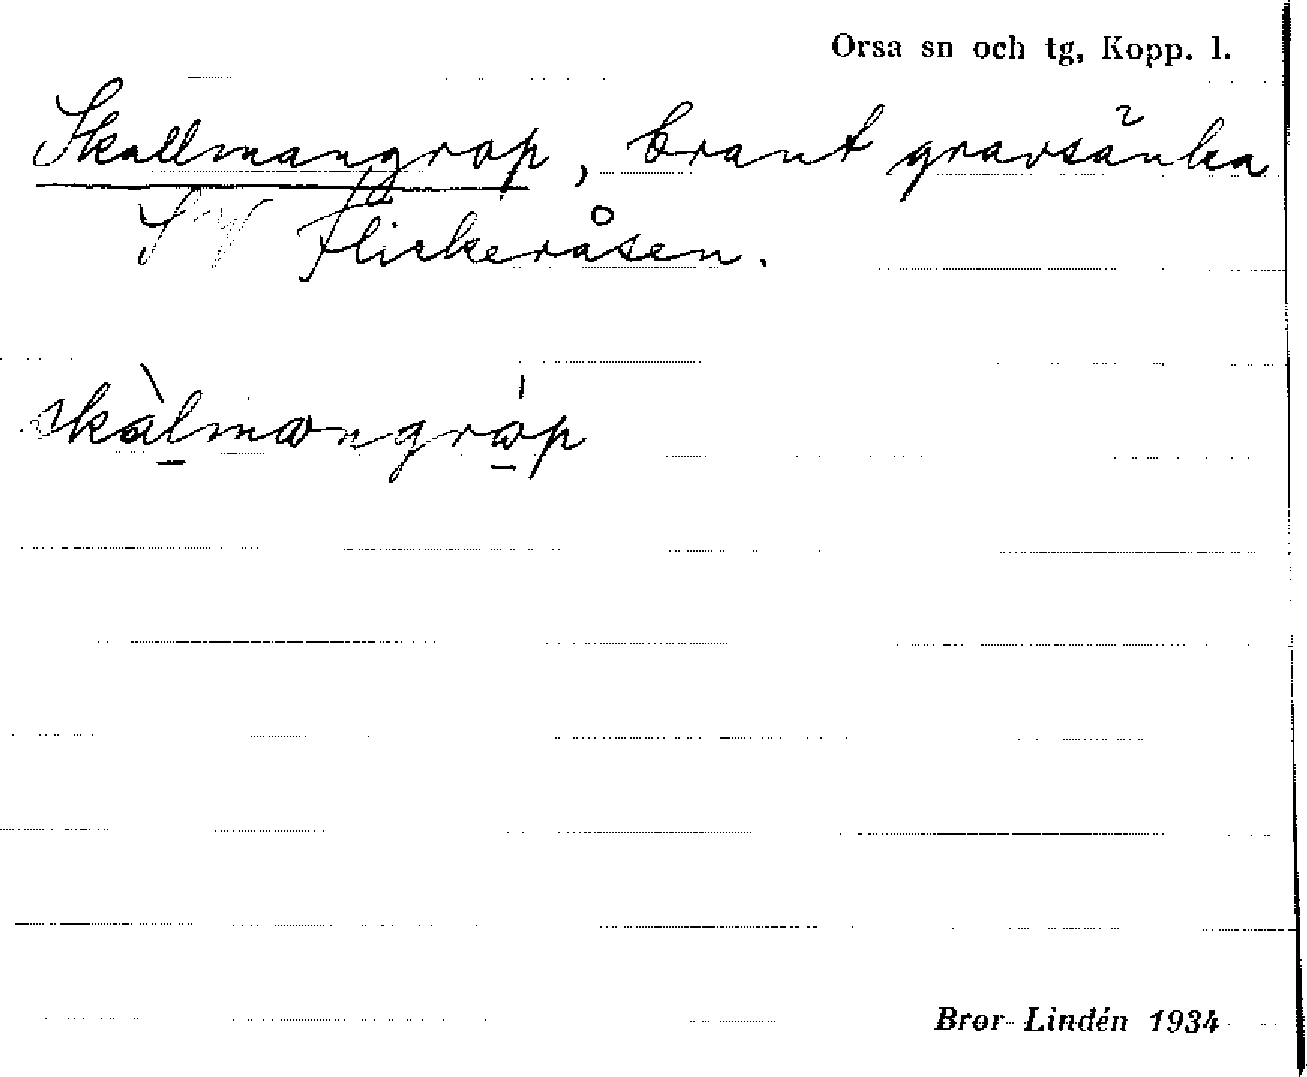 Orsa sn och tg, Kopp. l.
Skallmangrop, brant gravsänka
SV Flickeråsen.
skàlmαngrα̍p
Bror Lindén 1934